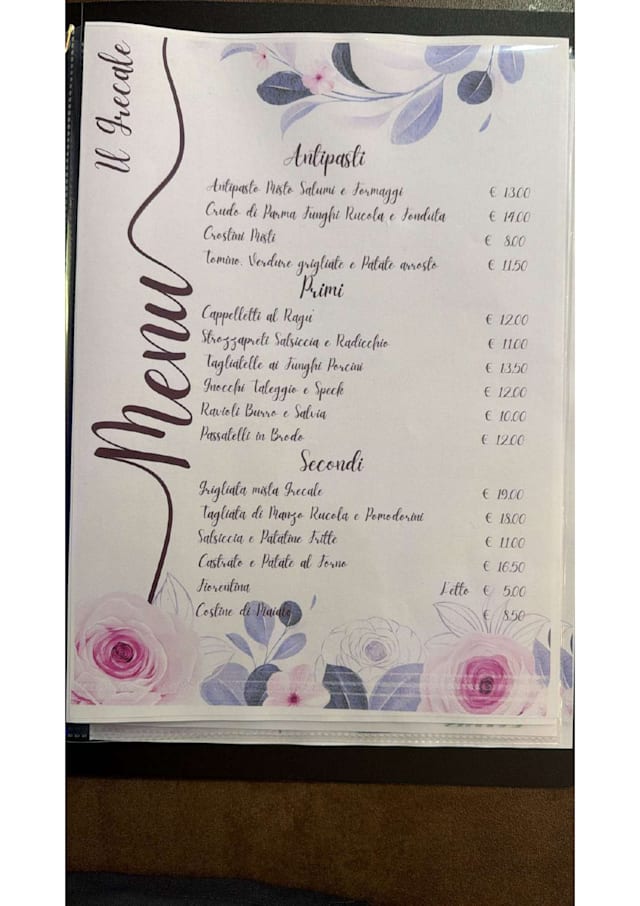 Il Grecale
Menu
Antipasti
Antipasto Misto Salumi e Formaggi € 13.00
Crudo di Parma Funghi Rucola e Fonduta € 14.00
Crostini Misti € 8.00
Tomino, Verdure grigliate e Patate arrosto € 11.50
Primi
Cappelletti al Ragu' € 12.00
Strozzapreti Salsiccia e Radicchio € 11.00
Tagliatelle ai Funghi Porcini € 13.50
Gnocchi Taleggio e Speck € 12.00
Ravioli Burro e Salvia € 10.00
Passatelli in Brodo € 12.00
Secondi
Grigliata mista Grecale € 19.00
Tagliata di Manzo Rucola e Pomodorini € 18.00
Salsiccia e Patatine Fritte € 11.00
Castrato e Patate al Forno € 16.50
Fiorentina L'etto € 5.00
Costine di Maiale € 8.50